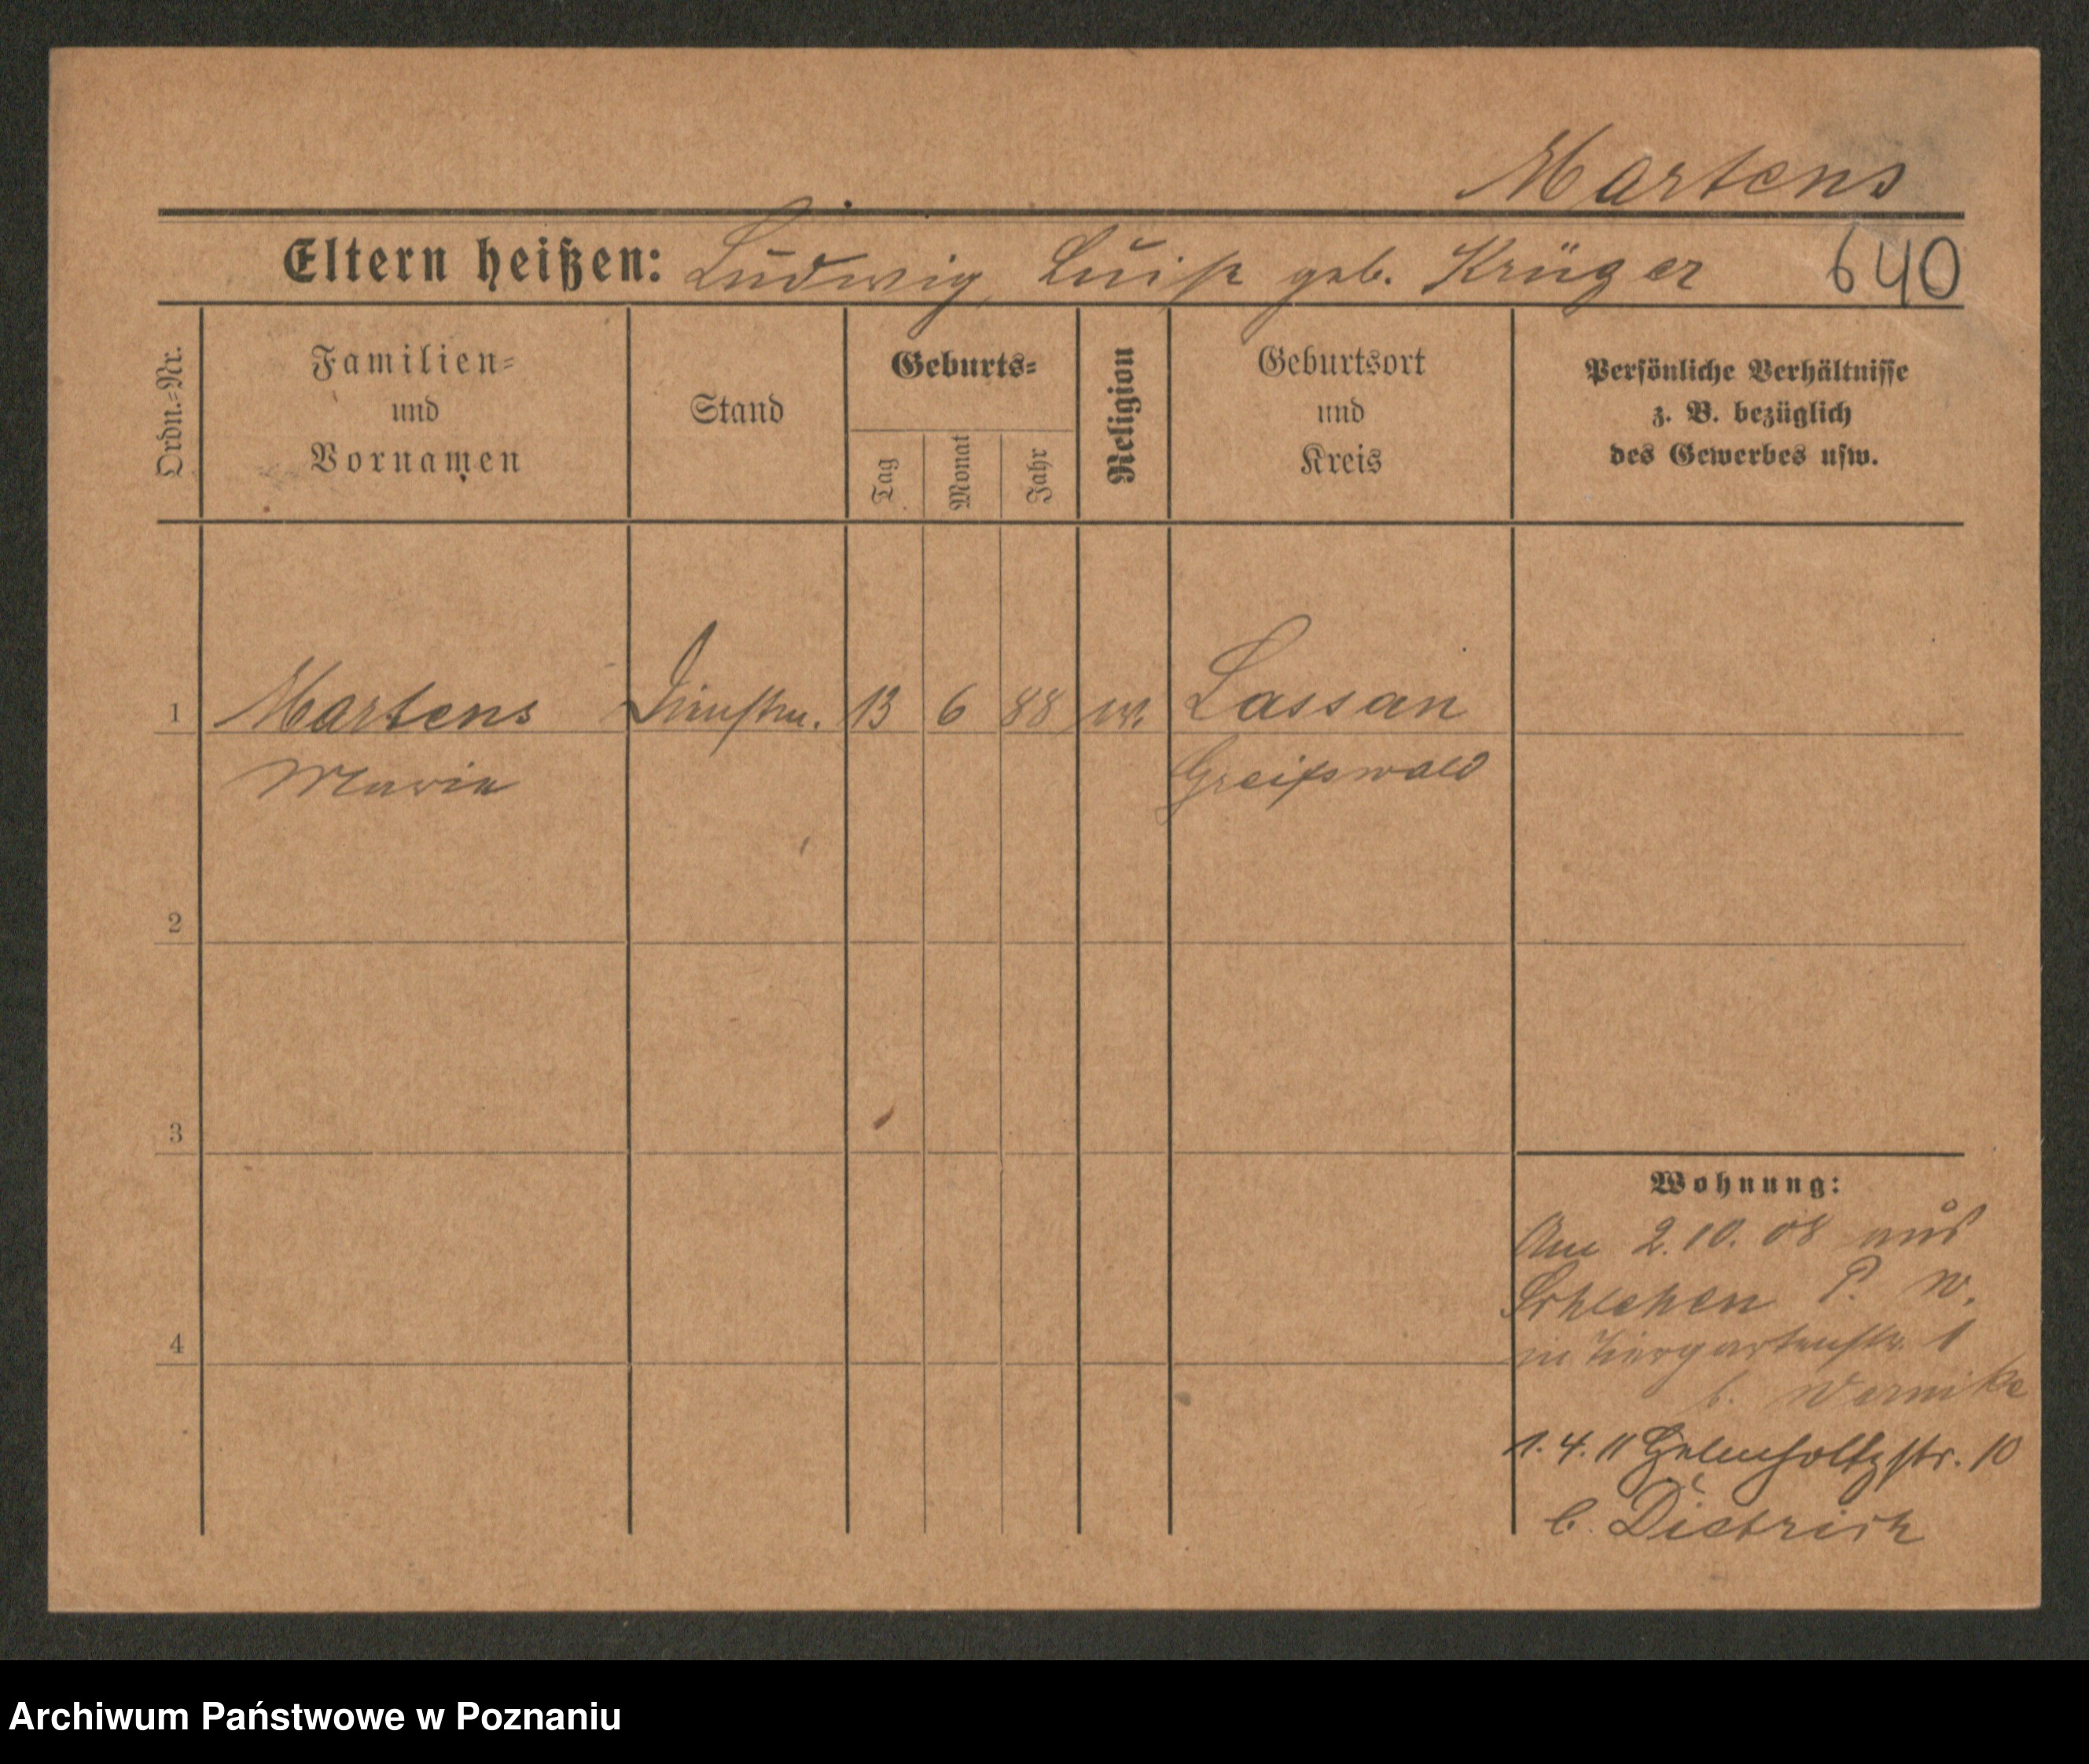 Martens
Eltern heißen: Ludwig Luise geb. Krüger 640
Ordn.-Nr.
Familien-
und
Vornamen
Stand
Geburts-
Tag
Monat
Jahr
Religion
Geburtsort
und
Kreis
Persönliche Verhältnisse
z. B. bezüglich
des Gewerbes usw.
1 Martens Dienstm. 13 6 88 ev. Lassan
Marie Greifswald
2
3
4
Wohnung:
Am 2.10.08 aus
Schlehen P. W.
in Tiergartenstr. 1
b. Wernike
1.4.11 Helmholtzstr. 10
b. Dietrich
Archiwum Państwowe w Poznaniu